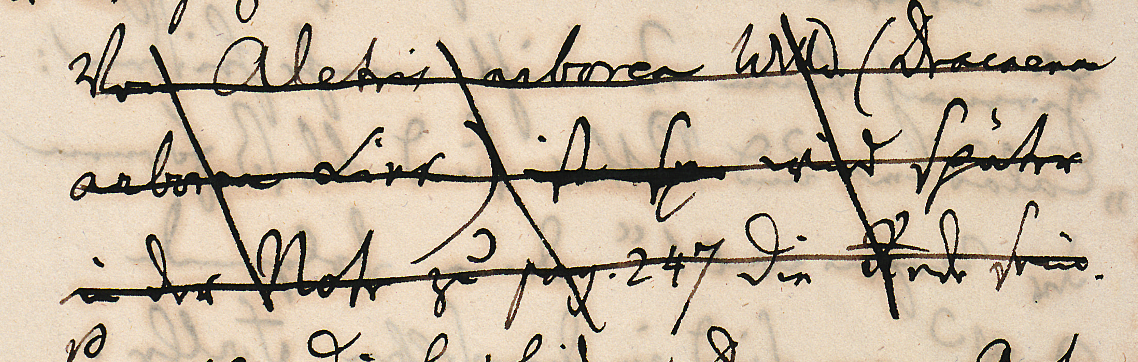 Von Aletris arborea Willd (Dracaena
arborea Link) ist wird später
in der Note zu pag. 247 die Rede sein.